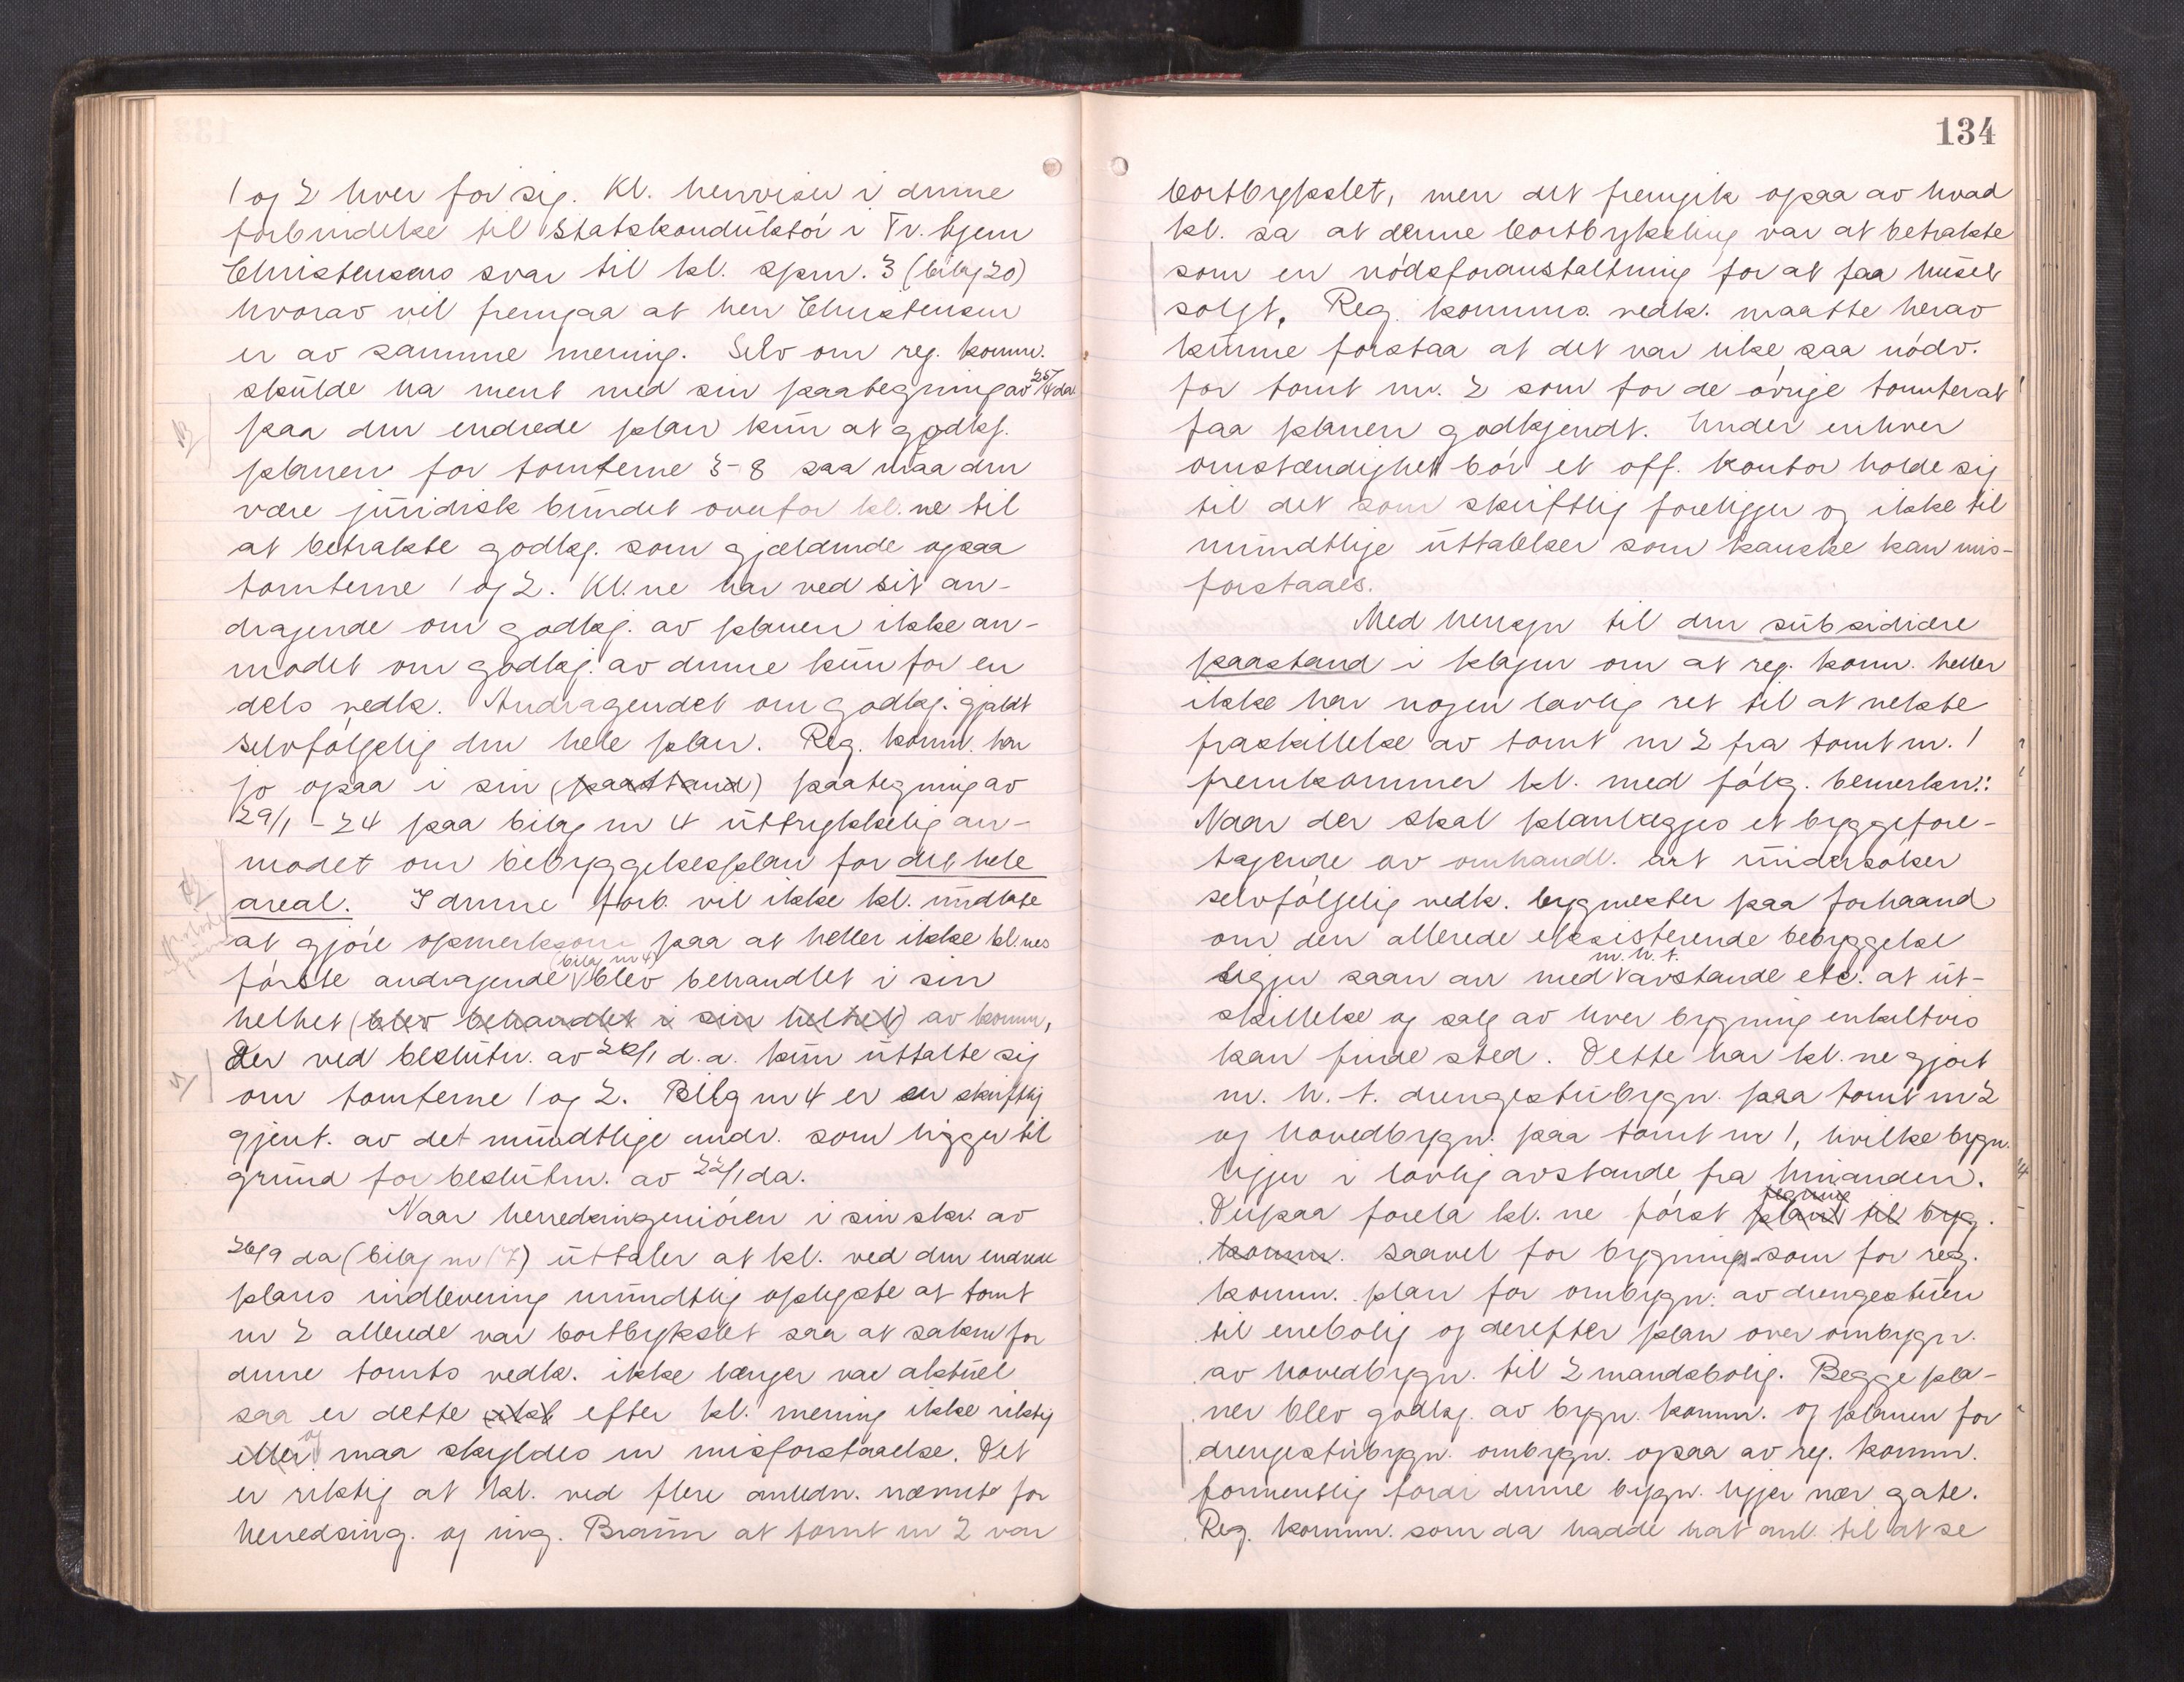 1 og 2 hver for sig. Kl. henviser i denne
forbindelse til Statskonduktör i Tr.hjem
Christensens svar til kl. spm. 3 (bilag 20)
hvorav vil fremgaa at herr Christensen
er av samme mening. Selv om reg. komm.
skulde ha ment med sin paategning av 25/4 da.
paa den endrede plan kun at godkj.
planen for tomterne 3-8 saa maa den
være juridisk bundet overfor kl.ne til
at betrakte godkj. som gjældende ogsaa
tomterne 1 og 2. Kl.ne har ved sit an-
dragende om godkj. av planen ikke an-
modet om godkj. av denne kun for en
dels vedk. Andragendet om godkj. gjaldt
selvfölgelig den hele plan. Reg. komm. har
jo ogsaa i sin (paastand) paategning av
29/1 - 24 paa bilag nr 4 uttrykkelig an-
modet om bebyggelsesplan for det hele
areal. I denne forb. vil ikke kl. undlate
at gjöre opmerksom paa at heller ikke kl.nes
förste andragende (bilag nr 4) blev behandlet i sin
helhet (blev behandlet i sin helhet) av komm,
der ved beslutn. av 22/1 d.a. kun uttalte sig
om tomterne 1 og 2. Bilag nr 4 er en skriftlig
gjent. av det mundtlige andr. som ligger til
grund for beslutn. av 22/1 da.
Naar herredsingeniören i sin skr. av
26/9 da (bilag nr 17) uttaler at kl. ved den endrede
plans indlevering mundtlig oplyste at tomt
nr 2 allerede var bortbykslet saa at saken for
denne tomts vedk. ikke længer var aktuel
saa er dette ikke efter kl. mening ikke riktig
eller og maa skyldes en misforstaaelse. Det
er riktig at kl. ved flere anledn. nævnte for
herredsing. og ing. Braun at tomt nr 2 var
134
bortbykslet, men det fremgik ogsaa av hvad
kl. sa at denne bortbyksling var at betrakte
som en nödsforanstaltning for at faa huset
solgt. Reg. komms. vedk. maatte herav
kunne forstaa at det var like saa nödv.
for tomt nr. 2 som for de övrige tomter at
faa planen godkjendt. Under enhver
omstændighet bör et off. kontor holde sig
til det som skriftlig foreligger og ikke til
mundtlige uttalelser som kanske kan mis-
forstaaes.
Med hensyn til den subsidiære
paastand i klagen om at reg. komm. heller
ikke har nogen lovlig ret til at nekte
fraskillelse av tomt nr 2 fra tomt nr. 1
fremkommer kl. med fölg. bemerkn.:
Naar der skal planlægges et byggefore-
tagende av omhandl. art undersöker
selvfölgelig vedk. bygmester paa forhaand
om den allerede eksisterende bebyggelse
ligger saan an med m.h.t. avstande etc. at ut-
skillelse og salg av hver bygning enkeltvis
kan finde sted. Dette har kl.ne gjort
m. h. t. drengestubygn. paa tomt nr 2
og hovedbygn. paa tomt nr 1, hvilke bygn.
ligger i lovlig avstande fra hinanden.
Derpaa forela kl. ne först plan til byg.
komm. saavel for bygnings- som for reg.
komm. plan for ombygn. av drengestuen
til enebolig og derefter plan over ombygn.
av hovedbygn. til 2 mandsbolig. Begge pla-
ner blev godkj. av bygn. komm. og planen for
drengestubygn. ombygn. ogsaa av reg. komm.
formentlig fordi denne bygn. ligger nær gate.
Reg. komm. som da hadde hat anl. til at se